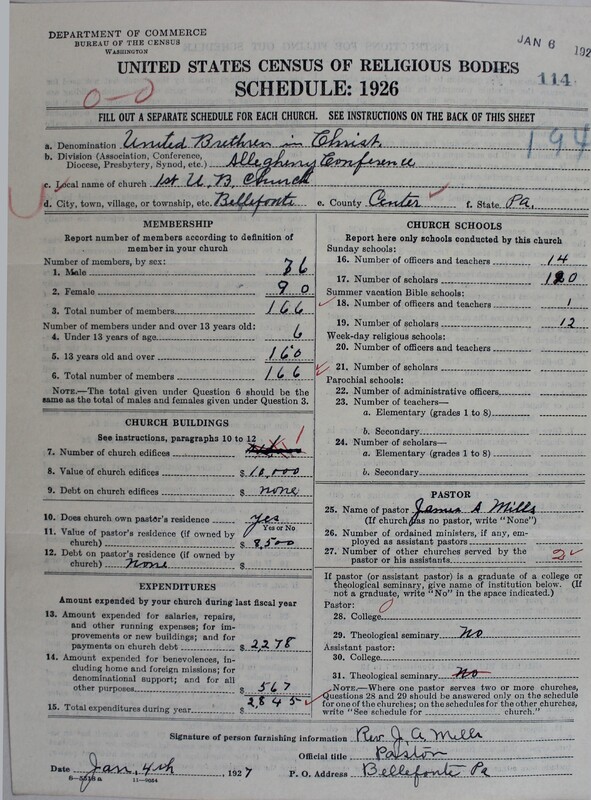 DEPARTMENT OF COMMERCE
BUREAU OF THE CENSUS
WASHINGTON
JAN 6 192
UNITED STATES CENSUS OF RELIGIOUS BODIES
SCHEDULE: 1926
114
0-0
FILL OUT A SEPARATE SCHEDULE FOR EACH CHURCH. SEE INSTRUCTIONS ON THE BACK OF THIS SHEET
194
a. Denomination United Brethren in Christ
b. Division (Association, Conference, Diocese, Presbytery, Synod, etc.) Allegheny Conference
c. Local name of church 1st U. B. Church
d. City, town, village, or township, etc. Bellefonte e. County Center f. State Pa.
MEMBERSHIP
Report number of members according to definition of
member in your church
Number of members, by sex:
1. Male 76
2. Female 90
3. Total number of members 166
Number of members under and over 13 years old:
4. Under 13 years of age 6
5. 13 years old and over 160
6. Total number of members 166
NOTE.—The total given under Question 6 should be the
same as the total of males and females given under Question 3.
CHURCH BUILDINGS
See instructions, paragraphs 10 to 12
7. Number of church edifices 1
8. Value of church edifices $ 10,000
9. Debt on church edifices $ none
10. Does church own pastor's residence yes
Yes or No
11. Value of pastor's residence (if owned by
church) $ 8,500
12. Debt on pastor's residence (if owned by
church) none $
EXPENDITURES
Amount expended by your church during last fiscal year
13. Amount expended for salaries, repairs,
and other running expenses; for im-
provements or new buildings; and for
payments on church debt $ 2278
14. Amount expended for benevolences, in-
cluding home and foreign missions; for
denominational support; and for all
other purposes $ 567
15. Total expenditures during year $ 2,845
CHURCH SCHOOLS
Report here only schools conducted by this church
Sunday schools:
16. Number of officers and teachers 14
17. Number of scholars 120
Summer vacation Bible schools:
18. Number of officers and teachers 1
19. Number of scholars 12
Week-day religious schools:
20. Number of officers and teachers
21. Number of scholars
Parochial schools:
22. Number of administrative officers
23. Number of teachers—
a. Elementary (grades 1 to 8)
b. Secondary
24. Number of scholars—
a. Elementary (grades 1 to 8)
b. Secondary
PASTOR
25. Name of pastor James A Mills
(If church has no pastor, write "None")
26. Number of ordained ministers, if any, em-
ployed as assistant pastors
27. Number of other churches served by the
pastor or his assistants 2
If pastor (or assistant pastor) is a graduate of a college or
theological seminary, give name of institution below. (If
not a graduate, write "No" in the space indicated.)
Pastor:
28. College
29. Theological seminary No
Assistant pastor:
30. College
31. Theological seminary No
NOTE.—Where one pastor serves two or more churches,
Questions 28 and 29 should be answered only on the schedule
for one of the churches; on the schedules for the other churches,
write "See schedule for church."
Signature of person furnishing information Rev. J. A. Mills
Official title Pastor
Date Jan. 4th, 1927 P. O. Address Bellefonte Pa
8-5318a 11-9684